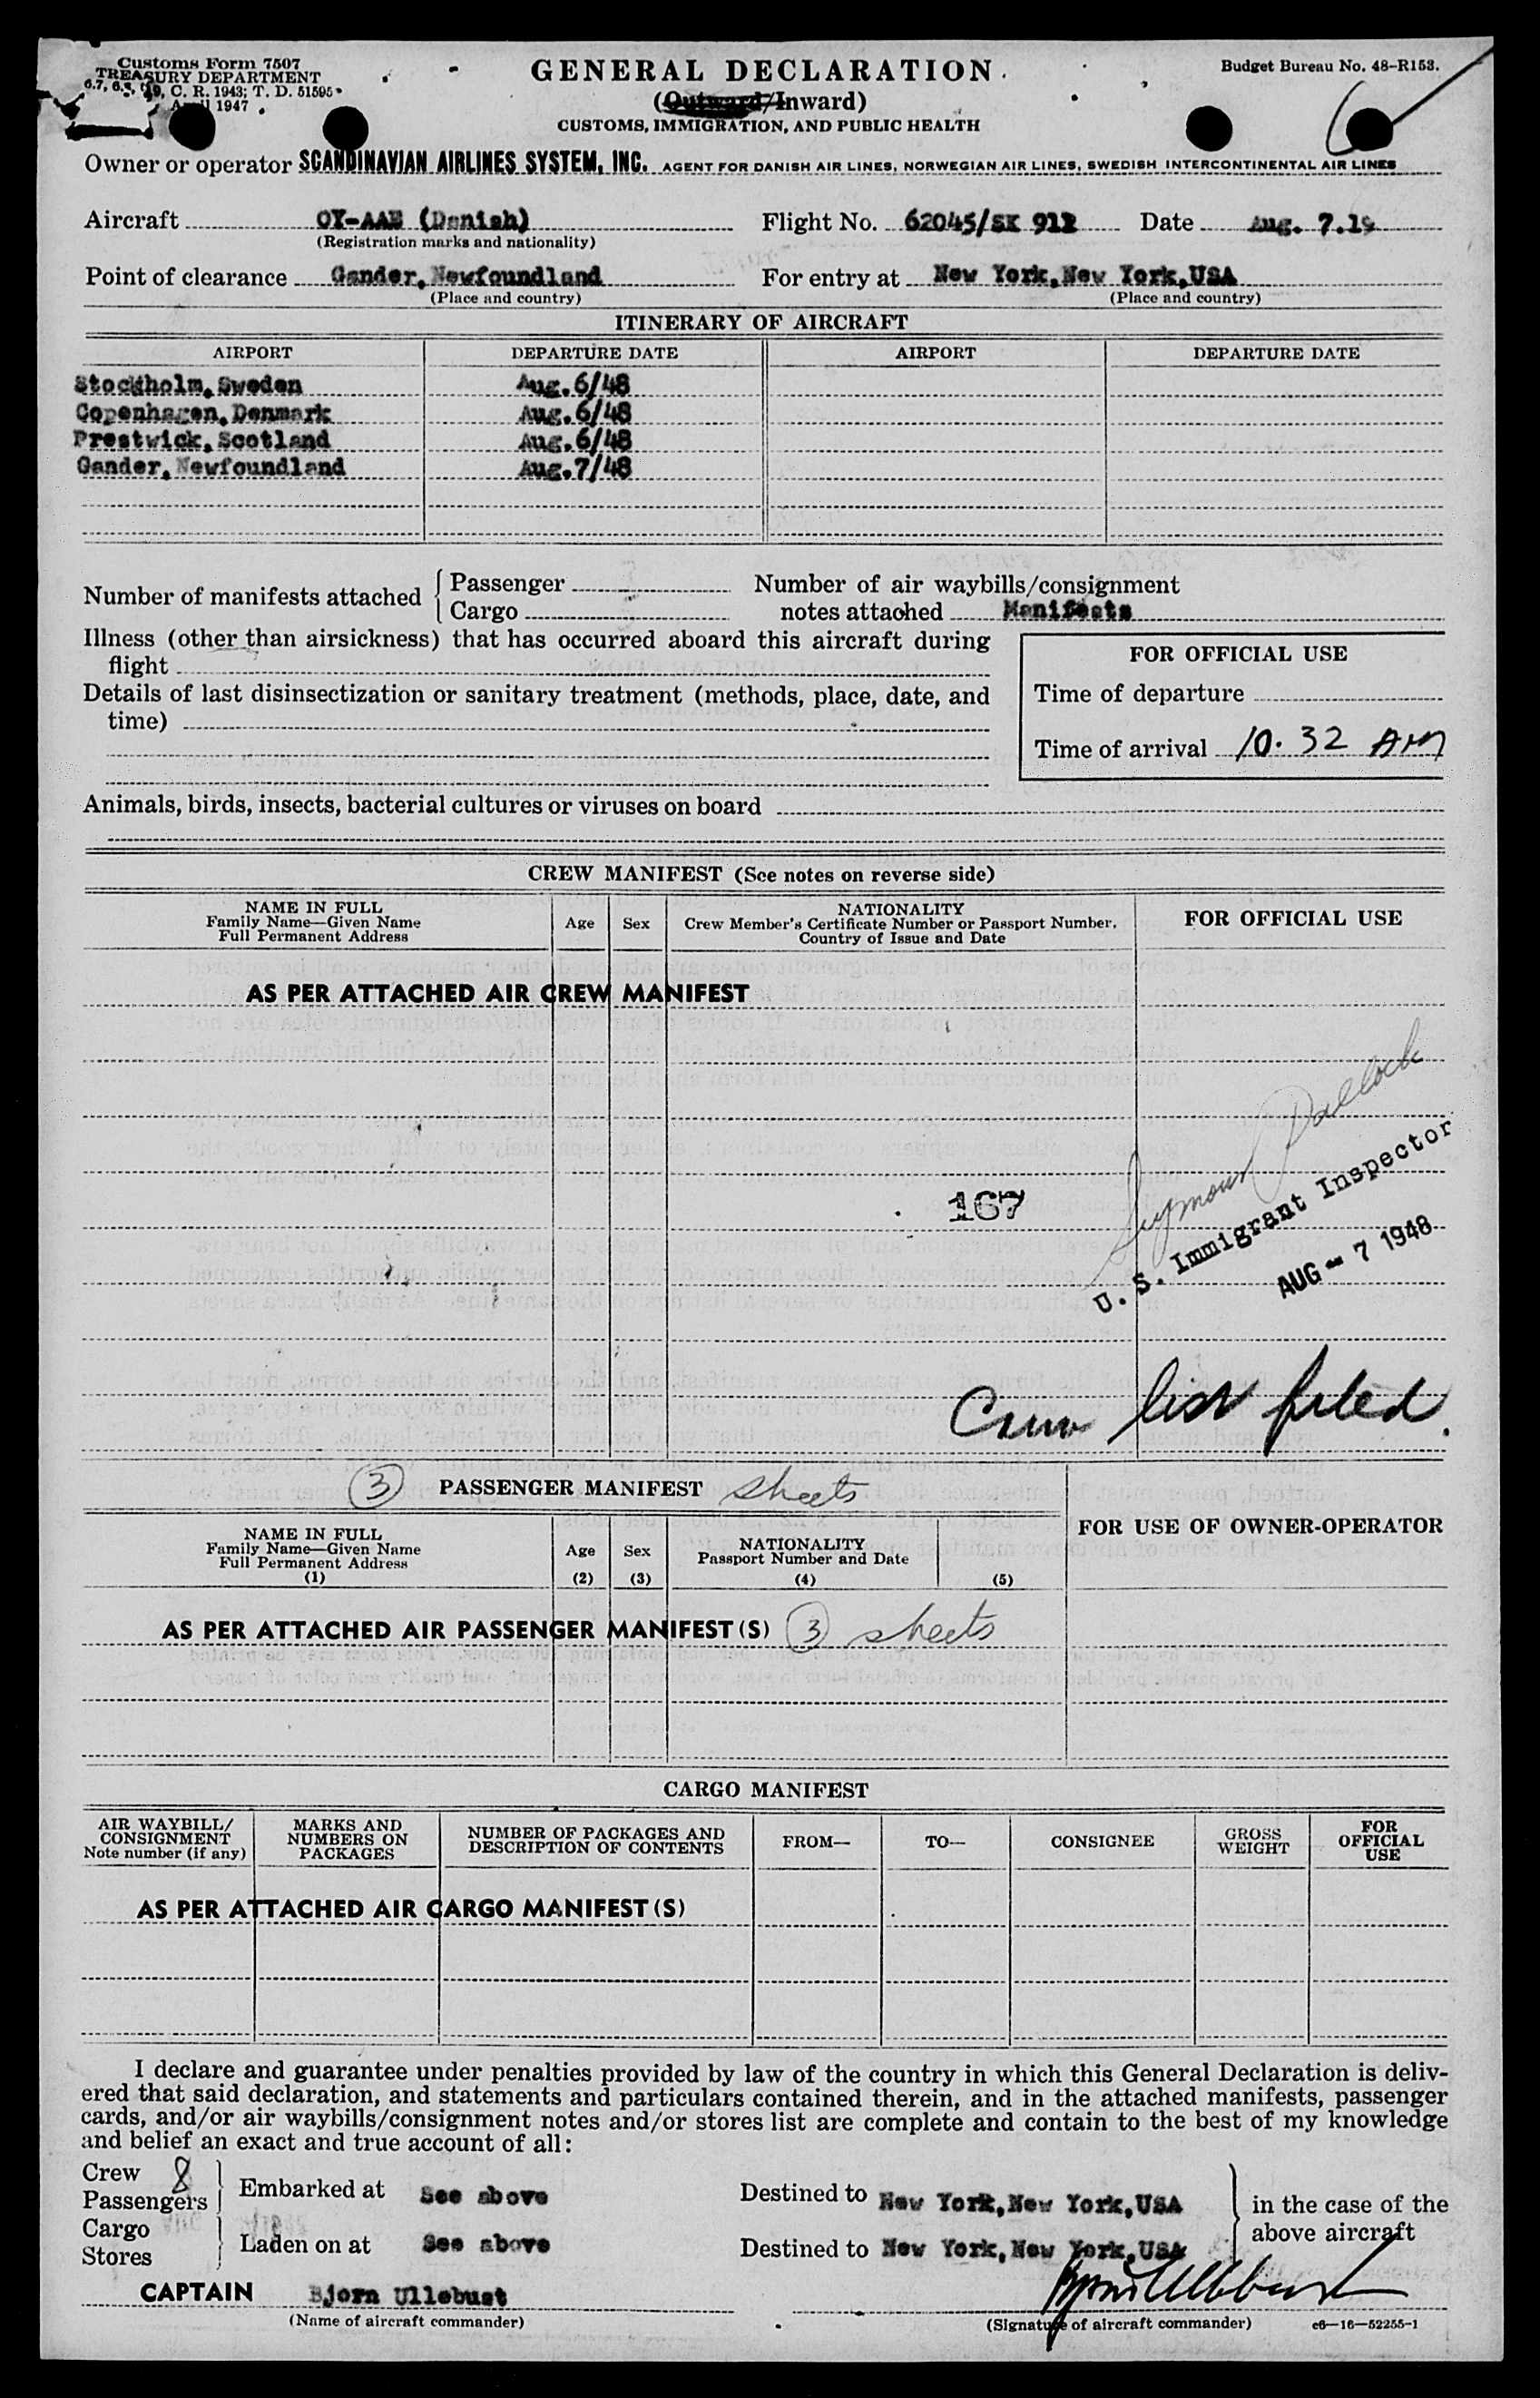 Customs Form 7507
TREASURY DEPARTMENT
C. R. 1943; T. D. 51595
1947
GENERAL DECLARATION
(Outward/Inward)
CUSTOMS, IMMIGRATION, AND PUBLIC HEALTH
Budget Bureau No. 48-R153.
Owner or operator SCANDINAVIAN AIRLINES SYSTEM, INC. AGENT FOR DANISH AIR LINES, NORWEGIAN AIR LINES, SWEDISH INTERCONTINENTAL AIR LINES
Aircraft OY-AAE (Danish) Flight No. 62045/SK 912 Date Aug. 7.19
(Registration marks and nationality)
Point of clearance Gander, Newfoundland For entry at New York, New York, USA
(Place and country) (Place and country)
ITINERARY OF AIRCRAFT
AIRPORT DEPARTURE DATE AIRPORT DEPARTURE DATE
Stockholm, Sweden Aug. 6/48
Copenhagen, Denmark Aug. 6/48
Prestwick, Scotland Aug. 6/48
Gander, Newfoundland Aug. 7/48
Number of manifests attached { Passenger
Cargo
Number of air waybills/consignment
notes attached Manifests
Illness (other than airsickness) that has occurred aboard this aircraft during
flight
Details of last disinsectization or sanitary treatment (methods, place, date, and
time)
FOR OFFICIAL USE
Time of departure
Time of arrival 10. 32 AM
Animals, birds, insects, bacterial cultures or viruses on board
CREW MANIFEST (See notes on reverse side)
NAME IN FULL
Family Name—Given Name
Full Permanent Address
Age
Sex
NATIONALITY
Crew Member's Certificate Number or Passport Number,
Country of Issue and Date
FOR OFFICIAL USE
AS PER ATTACHED AIR CREW MANIFEST
167
Seymour Pollock
U. S. Immigrant Inspector
AUG - 7 1948
Crew list filed.
(3) PASSENGER MANIFEST sheets
NAME IN FULL
Family Name—Given Name
Full Permanent Address
(1)
Age
(2)
Sex
(3)
NATIONALITY
Passport Number and Date
(4)
(5)
FOR USE OF OWNER-OPERATOR
AS PER ATTACHED AIR PASSENGER MANIFEST(S) (3) sheets
CARGO MANIFEST
AIR WAYBILL/
CONSIGNMENT
Note number (if any)
MARKS AND
NUMBERS ON
PACKAGES
NUMBER OF PACKAGES AND
DESCRIPTION OF CONTENTS
FROM—
TO—
CONSIGNEE
GROSS
WEIGHT
FOR
OFFICIAL
USE
AS PER ATTACHED AIR CARGO MANIFEST(S)
I declare and guarantee under penalties provided by law of the country in which this General Declaration is deliv-
ered that said declaration, and statements and particulars contained therein, and in the attached manifests, passenger
cards, and/or air waybills/consignment notes and/or stores list are complete and contain to the best of my knowledge
and belief an exact and true account of all:
Crew 8
Passengers
Embarked at See above
Destined to New York, New York, USA
Cargo
Stores
Laden on at See above
Destined to New York, New York, USA
in the case of the
above aircraft
CAPTAIN Bjorn Ullebust
(Name of aircraft commander)
(Signature of aircraft commander)
c6—16—52255-1